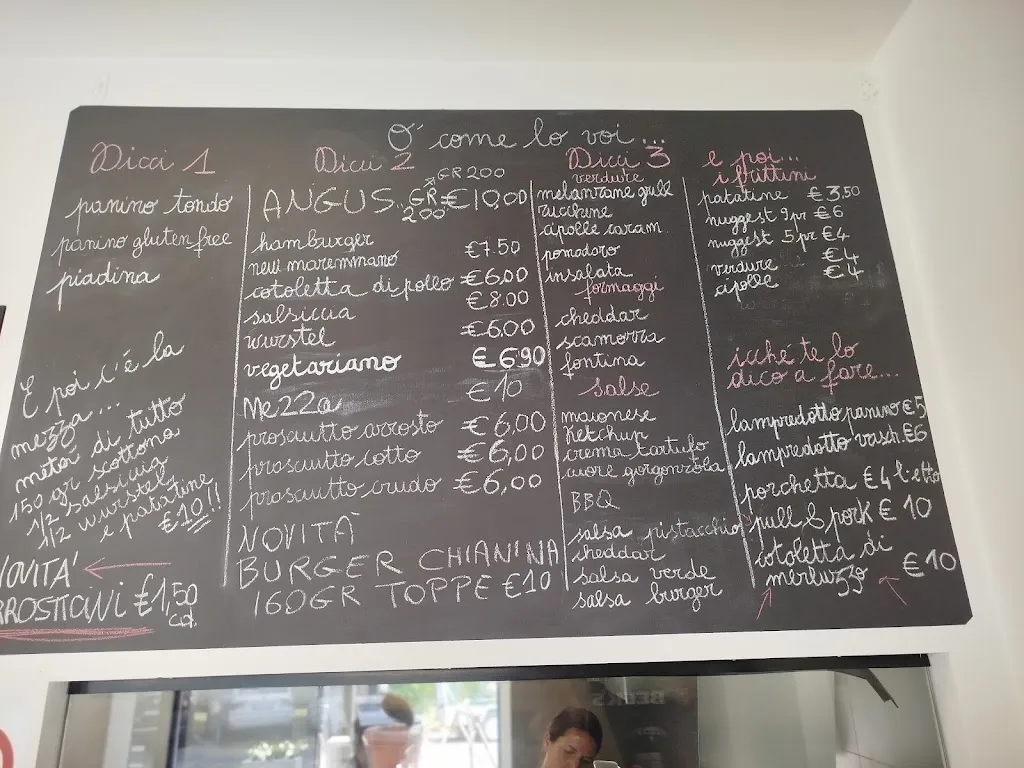 O' come lo voi...
Dicci 1
panino tondo
panino gluten free
piadina
E poi c'é la
mezza...
metá di tutto
150 gr scottona
1/2 salsiccia
1/2 wurstel
e patatine
€10!!
NOVITA'
ARROSTICINI €1,50
cad.
Dicci 2
GR 200
ANGUS.. GR €10,00
200
hamburger €7.50
new maremmano
cotoletta di pollo €6,00
salsiccia €8.00
wurstel €6,00
vegetariano €6,90
Mezza €10
prosciutto arrosto €6,00
prosciutto cotto €6,00
prosciutto crudo €6,00
NOVITÀ
BURGER CHIANINA
160GR TOPPE €10
Dicci 3
verdure
melanzane grill
zucchine
cipolle caram
pomodoro
insalata
formaggi
cheddar
scamorza
fontina
salse
maionese
Ketchup
crema tartufo
cuore gorgonzola
BBQ
salsa pistacchio
cheddar
salsa verde
salsa burger
e poi...
i frittini
patatine €3,50
nuggest 9pz €6
nuggest 5pz €4
verdure €4
cipolle €4
icché te lo
dico a fare...
lampredotto panino €5
lampredotto vasch. €6
porchetta €4 l'etto
pull & pork €10
cotoletta di
merluzzo €10